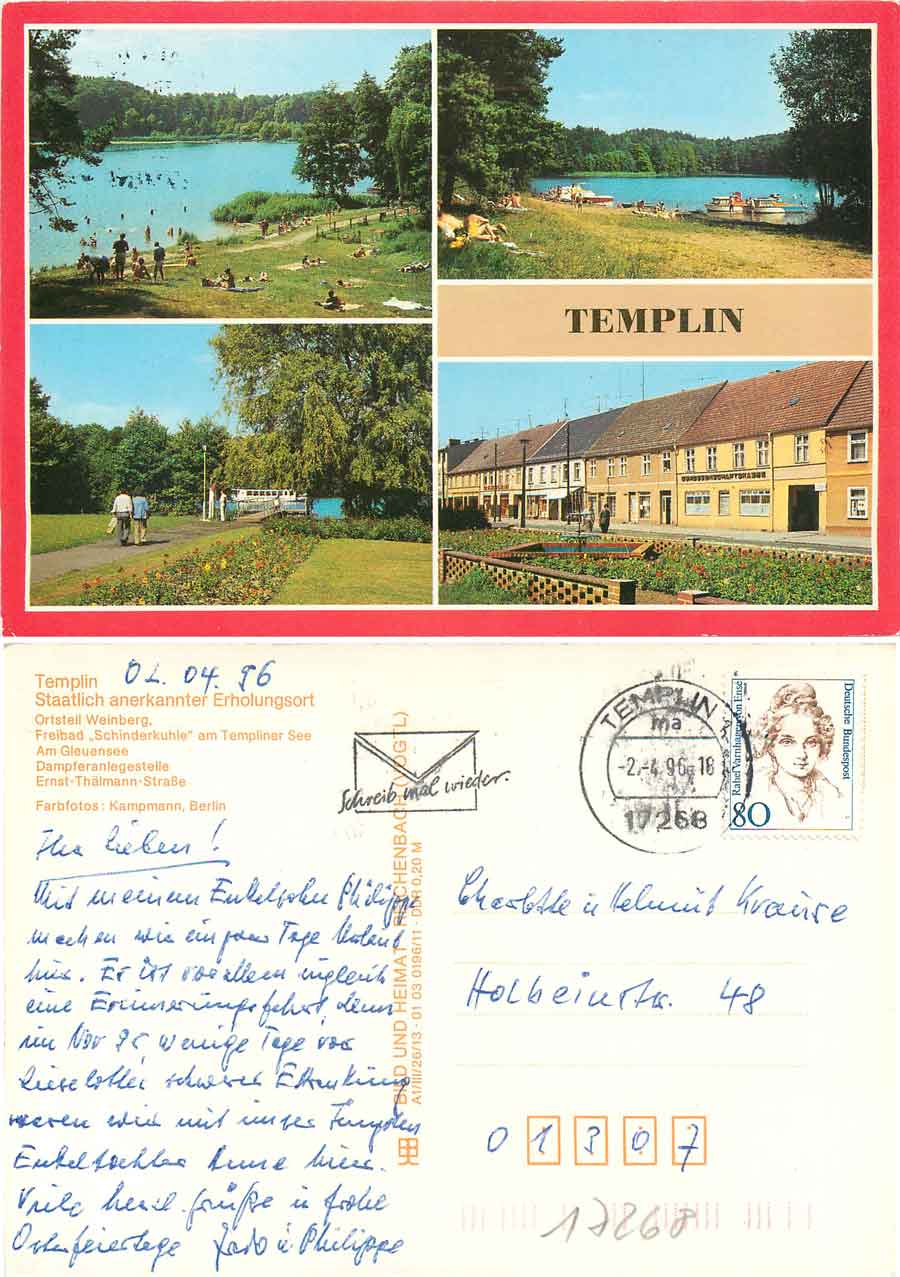 TEMPLIN
Templin 02. 04. 96
Staatlich anerkannter Erholungsort
Ortsteil Weinberg,
Freibad „Schinderkuhle" am Templiner See
Am Gleuensee
Dampferanlegestelle
Ernst-Thälmann-Straße
Farbfotos: Kampmann, Berlin
Schreib mal wieder.
TEMPLIN
ma
-2.-4.96-18
17268
Deutsche Bundespost
Rahel Varnhagen von Ense
80
Ihr Lieben!
Mit meinem Enkelsohn Philipp
machen wir ein paar Tage Urlaub
hier. Es ist vor allem zugleich
eine Erinnerungsfahrt, denn
im Nov 95, wenige Tage vor
Lieselottes schwerer Erkrankung
waren wir mit unser jüngsten
Enkeltochter Anne hier.
Viele herzl. Grüße u frohe
Osterfeiertage u Philippe
BILD UND HEIMAT REICHENBACH (VOGTL)
A1/III/26/13 · 01 03 0196/11 · DDR 0,20 M
Charlotte u Helmut Krause
Holbeinstr. 48
01307
17268